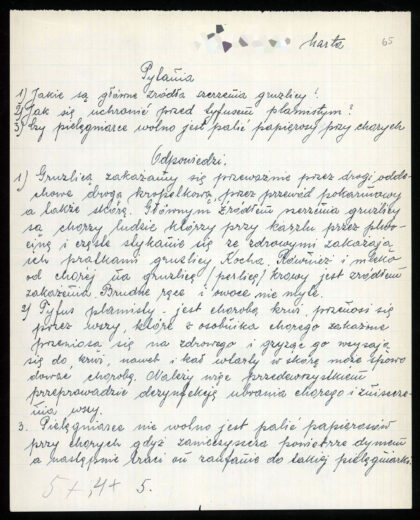 Marta 65
Pytania
1) Jakie są główne źródła szerzenia gruźlicy?
2) Jak się uchronić przed tyfusem plamistym?
3) Czy pielęgniarce wolno jest palić papierosy przy chorych
Odpowiedzi.
1) Gruźlicą zakażamy się przeważnie przez drogi odde-
chowe drogą kropelkową, przez przewód pokarmowy
a także skórę. Głównym źródłem szerzenia gruźlicy
są chorzy ludzie którzy przy kaszlu przez plwo-
cinę i częste stykanie się ze zdrowymi zakażają
ich prątkami gruźlicy Kocha. Również i mleko
od chorej na gruźlicę (perlicę) krowy jest źródłem
zakażenia. Brudne ręce i owoce nie myte.
2) Tyfus plamisty - jest chorobą krwi, przenosi się
przez wszy, które z osobnika chorego zakaźnie
przenoszą się na zdrowego i gryząc go wsysają
się do krwi, nawet i kał wtarty w skórę może spowo
dować chorobę. Należy więc przedewszystkiem
przeprowadzić dezynfekcję ubrania chorego i zniszcze-
nia wszy.
3. Pielęgniarce nie wolno jest palić papierosów
przy chorych gdyż zanieczyszcza powietrze dymem
a następnie traci on zaufanie do takiej pielęgniarki.
5+,4+ 5.